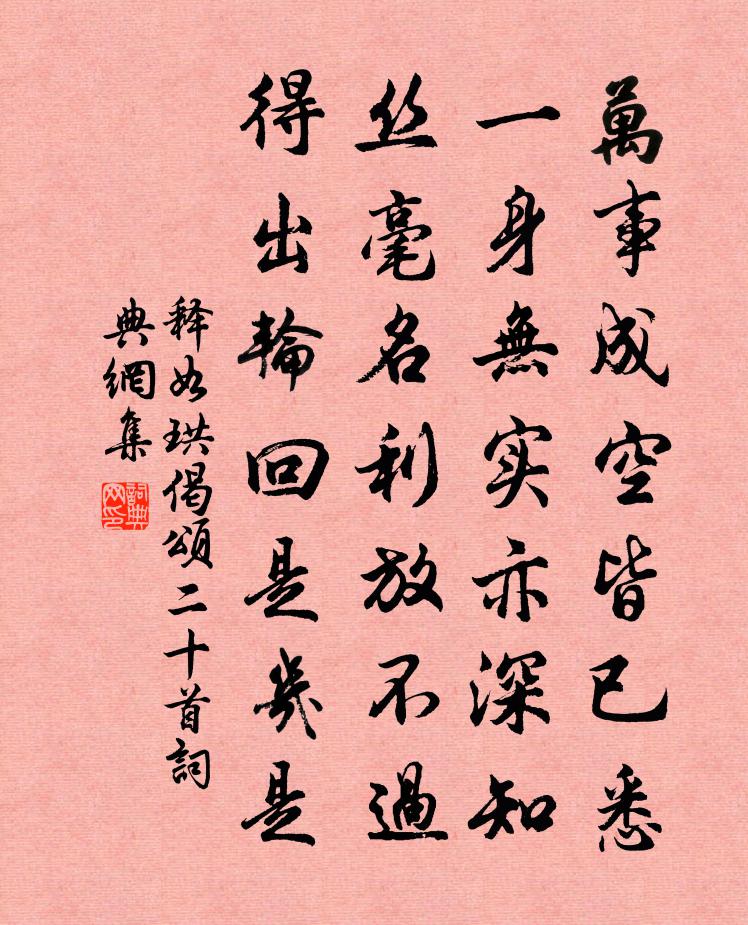 萬事成空皆已悉
一身無实亦深知
丝毫名利放不過
得出輪回是幾是
释如珙偈頌二十首詞
典網集
詞典
网印